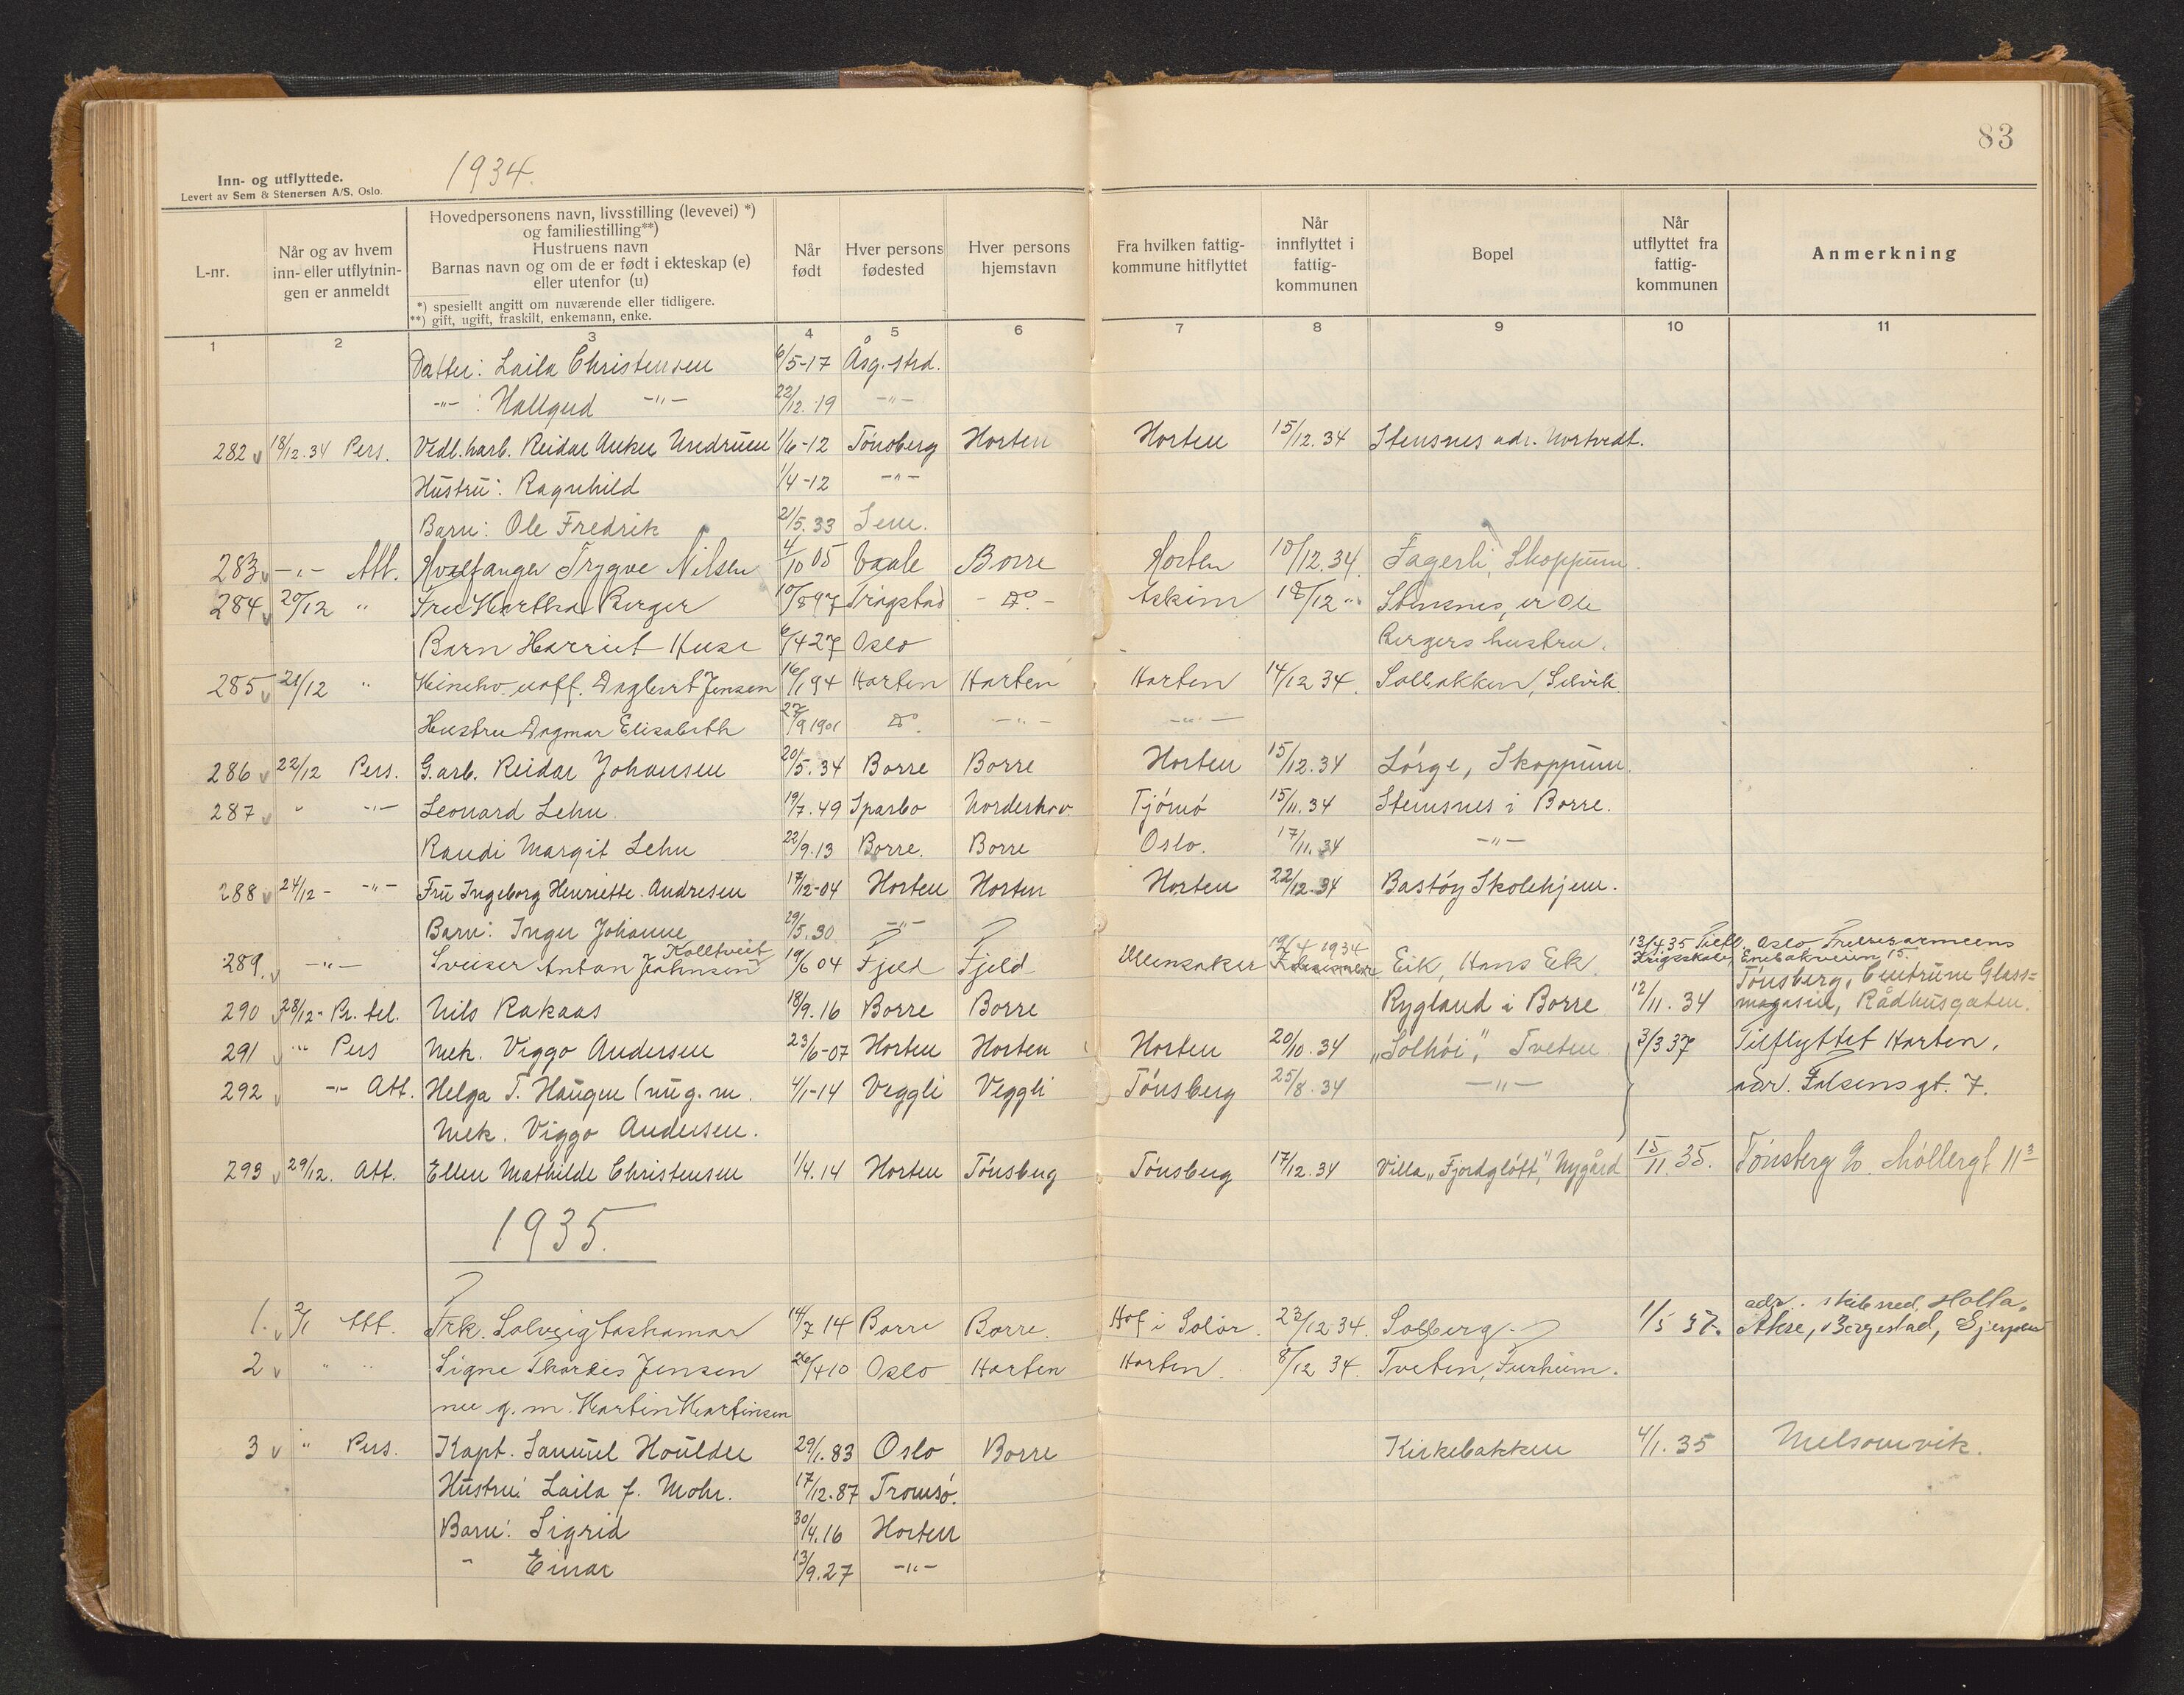 83
Inn- og utflyttede.
Levert av Sem & Stenersen A/S, Oslo.
1934.
L-nr.
Når og av hvem
inn- eller utflytnin-
gen er anmeldt
Hovedpersonens navn, livsstilling (levevei) *)
og familiestilling**)
Hustruens navn
Barnas navn og om de er født i ekteskap (e)
eller utenfor (u)
*) spesiellt angitt om nuværende eller tidligere.
**) gift, ugift, fraskilt, enkemann, enke.
Når
født
Hver persons
fødested
Hver persons
hjemstavn
Fra hvilken fattig-
kommune hitflyttet
Når
innflyttet i
fattig-
kommunen
Bopel
Når
utflyttet fra
fattig-
kommunen
Anmerkning
1 2 3 4 5 6 7 8 9 10 11
Datter: Laila Christensen 6/5-17 Åsg.strd.
-"- : Hallgud -"- 22/12.19 -"-
282 18/12.34 Pers. Vedl.harb. Reidar Anker Undrum 1/6-12 Tönsberg Horten Horten 15/12.34 Stensnes adr. Nortvedt.
Hustru: Ragnhild 1/4-12 -"-
Barn: Ole Fredrik 21/5.33 Sem.
283 -"- Att. Hvalfanger Trygve Nilsen 4/10 05 Vaale Borre Horten 10/12.34. Fagerli, Skoppum.
284 20/12 " Fru Martha Berger 10/8 97 Trögstad - Do - Askim 18/12 " Stensnes, er Ole
Barn Harriet Huse 6/4 27 Oslo Bergers hustru.
285 21/12 " Dagbert Jensen 16/1 94 Horten Horten Horten 14/12 34. Solbakken, Selvik.
Hustru Dagmar Elisabeth 27/9 1901 Do -"- -"-
286 22/12 Pers. G.arb. Reidar Johansen 20/5.34 Borre Borre Horten 15/12.34 Lörge, Skoppum.
287 " -"- Leonard Lehn 19/7.49 Sparbo Norderhov. Tjömö 15/11.34 Stensnes i Borre.
Randi Margit Lehn 22/9.13 Borre. Borre Oslo. 17/11.34 -"-
288 24/12 - -"- Fru Ingeborg Henriette Andresen 17/12-04 Horten Horten Horten 22/12.34 Bastöy Skolehjem.
Barn: Inger Johanne 29/5.30 -"-
Kolltveit 19/4 1934 13/4.35 Tilfl. Oslo Frelsesarmeens
289. -"- Sveiser Anton Johnsen 19/6 04 Fjeld Fjeld Ullensaker Eik, Hans Eik. Krigsskole, Enebakveien 15.
Tönsberg, Centrum Glass=
290 28/12 - Pr. tel. Nils Rakaas 18/9.16 Borre Borre Rygland i Borre 12/11.34 magasin, Rådhusgaten.
291 " Pers Mek. Viggo Andersen 23/6-07 Horten Horten Horten 20/10.34 „Solhöi", Tveten 3/3 37 Tilflyttet Horten,
292 -"- Att. Helga T. Haugen (nu g. m. 4/1-14 Veggli Veggli Tönsberg 25/8.34 -"- adr. Falsensgt. 7.
Mek. Viggo Andersen.
293 29/12. Att. Ellen Mathilde Christensen 1/4.14 Horten Tönsberg Tönsberg 17/12.34 Villa „Fjordglött", Nygård 15/11.35. Tönsberg c/o. Möllergt 11³
1935.
adr. skibsred. Holta,
1. 2/1 Att. Frk. Solveig Aaskamar 14/7 14 Borre Borre. Hof i Solör. 23/12 34. Solberg 1/5 37. Åkre, Borgestad, Gjerpen
2 " " Signe Thordis Jensen 26/4 10 Oslo Horten Horten. 8/12 34. Tveten, Furheim.
nu g. m. Martin Martinsen
3 " Pers. Kapt. Samuel Houlder 29/1.83 Oslo Borre Kirkebakken 4/1.35 Melsomvik.
Hustru: Laila f. Mohr. 17/12.87 Tromsö.
Barn: Sigrid 30/4.16 Horten
" Einar 13/9.27 -"-